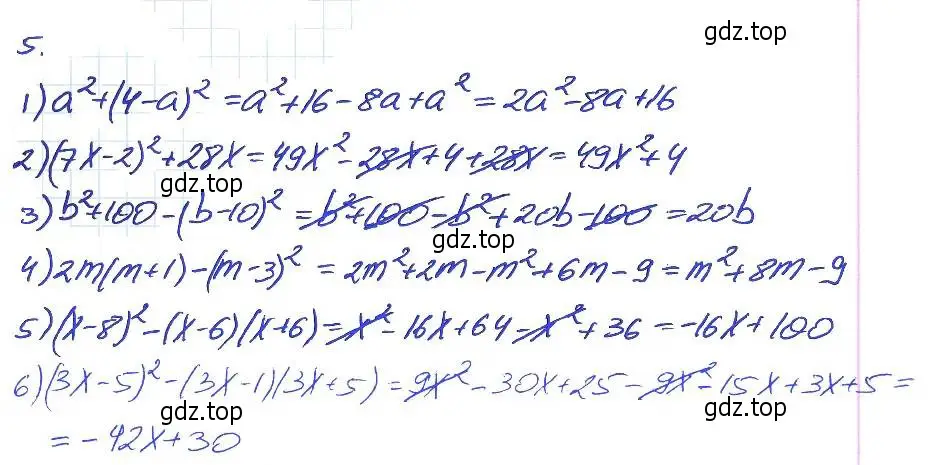 gdz.top
5.
1) a²+(4-a)² = a²+16-8a+a² = 2a²-8a+16
2) (7x-2)²+28x = 49x²-28x+4+28x = 49x²+4
gdz.top
3) b²+100-(b-10)² = b²+100-b²+20b-100 = 20b
gdz.top
4) 2m(m+1)-(m-3)² = 2m²+2m-m²+6m-9 = m²+8m-9
5) (x-8)²-(x-6)(x+6) = x²-16x+64-x²+36 = -16x+100
6) (3x-5)²-(3x-1)(3x+5) = 9x²-30x+25-9x²-15x+3x+5 =
= -42x+30
gdz.top
gdz.top